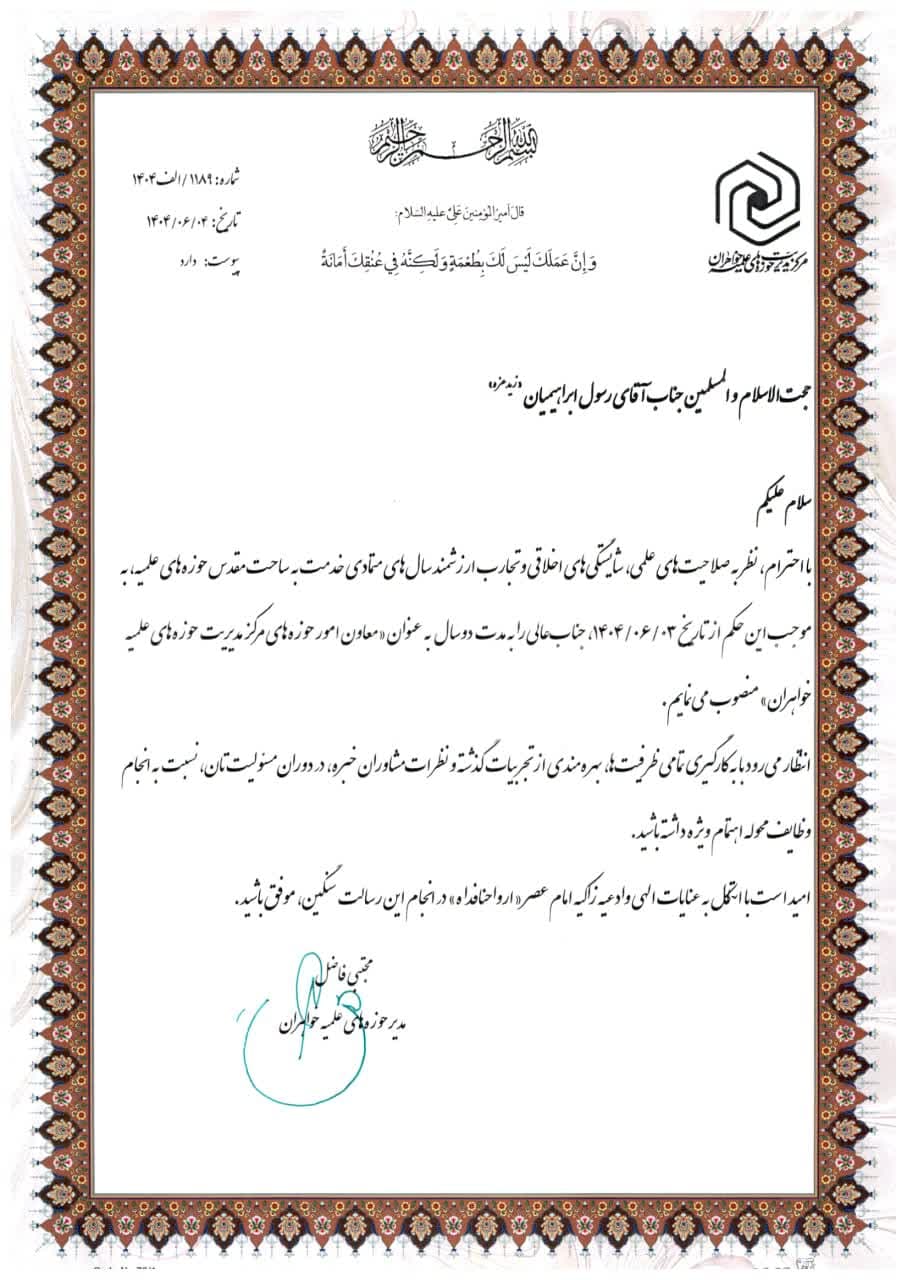 بسم الله الرحمن الرحیم
شماره: ۱۱۸۹/الف۱۴۰۴
تاریخ: ۱۴۰۴/۰۶/۰۴
پیوست: دارد
مرکز مدیریت حوزه‌های علمیه خواهران
قالَ اَمیرُ المؤمِنینَ عَلیٌّ عَلَیهِ السَّلام:
وَإِنَّ عَمَلَكَ لَيْسَ لَكَ بِطُعْمَةٍ وَلَكِنَّهُ فِي عُنُقِكَ أَمَانَةٌ
حجت الاسلام و المسلمین جناب آقای رسول ابراهیمیان «زید عزه»
سلام علیکم
با احترام، نظر به صلاحیت های علمی، شایستگی های اخلاقی و تجارب ارزشمند سال های متمادی خدمت به ساحت مقدس حوزه های علمیه، به
موجب این حکم از تاریخ ۱۴۰۴/۰۶/۰۳، جناب عالی را به مدت دو سال به عنوان «معاون امور حوزه های مرکز مدیریت حوزه های علمیه
خواهران» منصوب می نمایم.
انتظار می رود با به کارگیری تمامی ظرفیت ها، بهره مندی از تجربیات گذشته و نظرات مشاوران خبره، در دوران مسئولیت تان، نسبت به انجام
وظایف محوله اهتمام ویژه داشته باشید.
امید است با اتکال به عنایات الهی و ادعیه زاکیه امام عصر «ارواحنا فداه» در انجام این رسالت سنگین، موفق باشید.
مجتبی فاضل
مدیر حوزه های علمیه خواهران